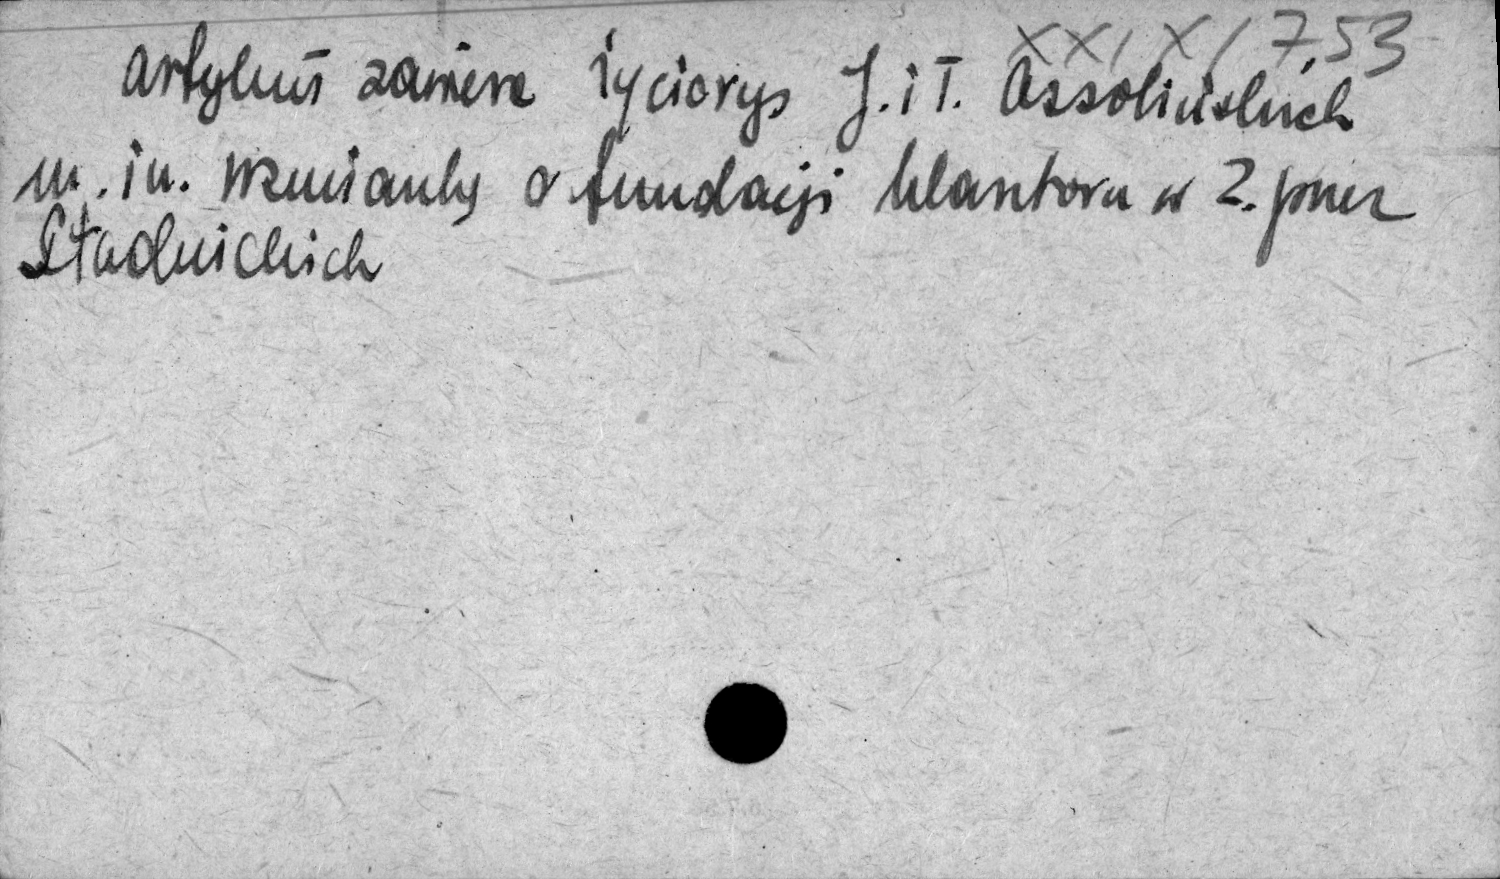 XX/X/7.53
artykuł zawiera życiorys J. i T. Ossolińskich
m. in. wzmianka o fundacji klasztoru w Z. przez
Stadnickich